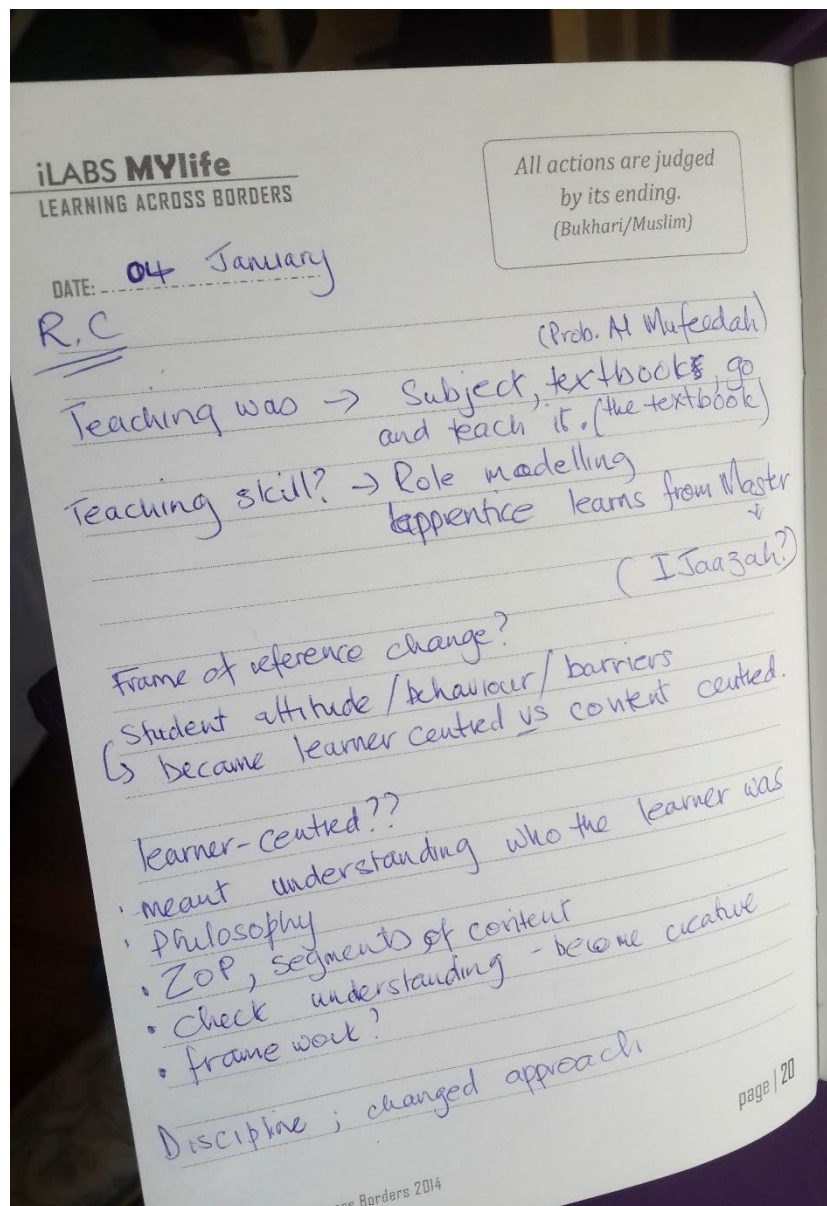 iLABS MYlife
LEARNING ACROSS BORDERS
All actions are judged
by its ending.
(Bukhari/Muslim)
DATE: 04 January
R.C
(Prob. Al Mufeedah)
Teaching was → Subject, textbooks, go
and teach it. (the textbook)
Teaching skill? → Role modelling
apprentice learns from Master
(IJaazah?)
Frame of reference change?
Student attitude / behaviour / barriers
↳ became learner centred vs content centred.
learner-centred??
· meant understanding who the learner was
· Philosophy
· ZOP, segments of content
· check understanding - become creative
· frame work?
Discipline ; changed approach
page | 20
Borders 2014